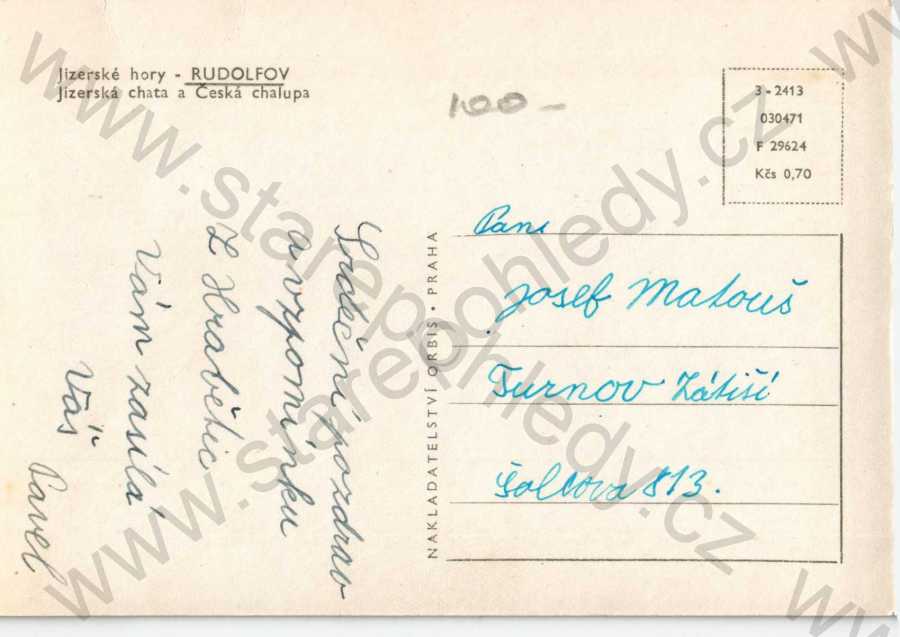 Jizerské hory - RUDOLFOV
Jizerská chata a Česká chalupa
100-
3 - 2413
030471
F 29624
Kčs 0,70
Srdečný pozdrav
a vzpomínku
z Hrabětic
Vám zasílá
Váš
Pavel
NAKLADATELSTVÍ ORBIS • PRAHA
Josef Matouš
Turnov Zátiší
Šoltova 813.
www.starepohledy.cz
www.starepohledy.cz
www.starepohledy.cz